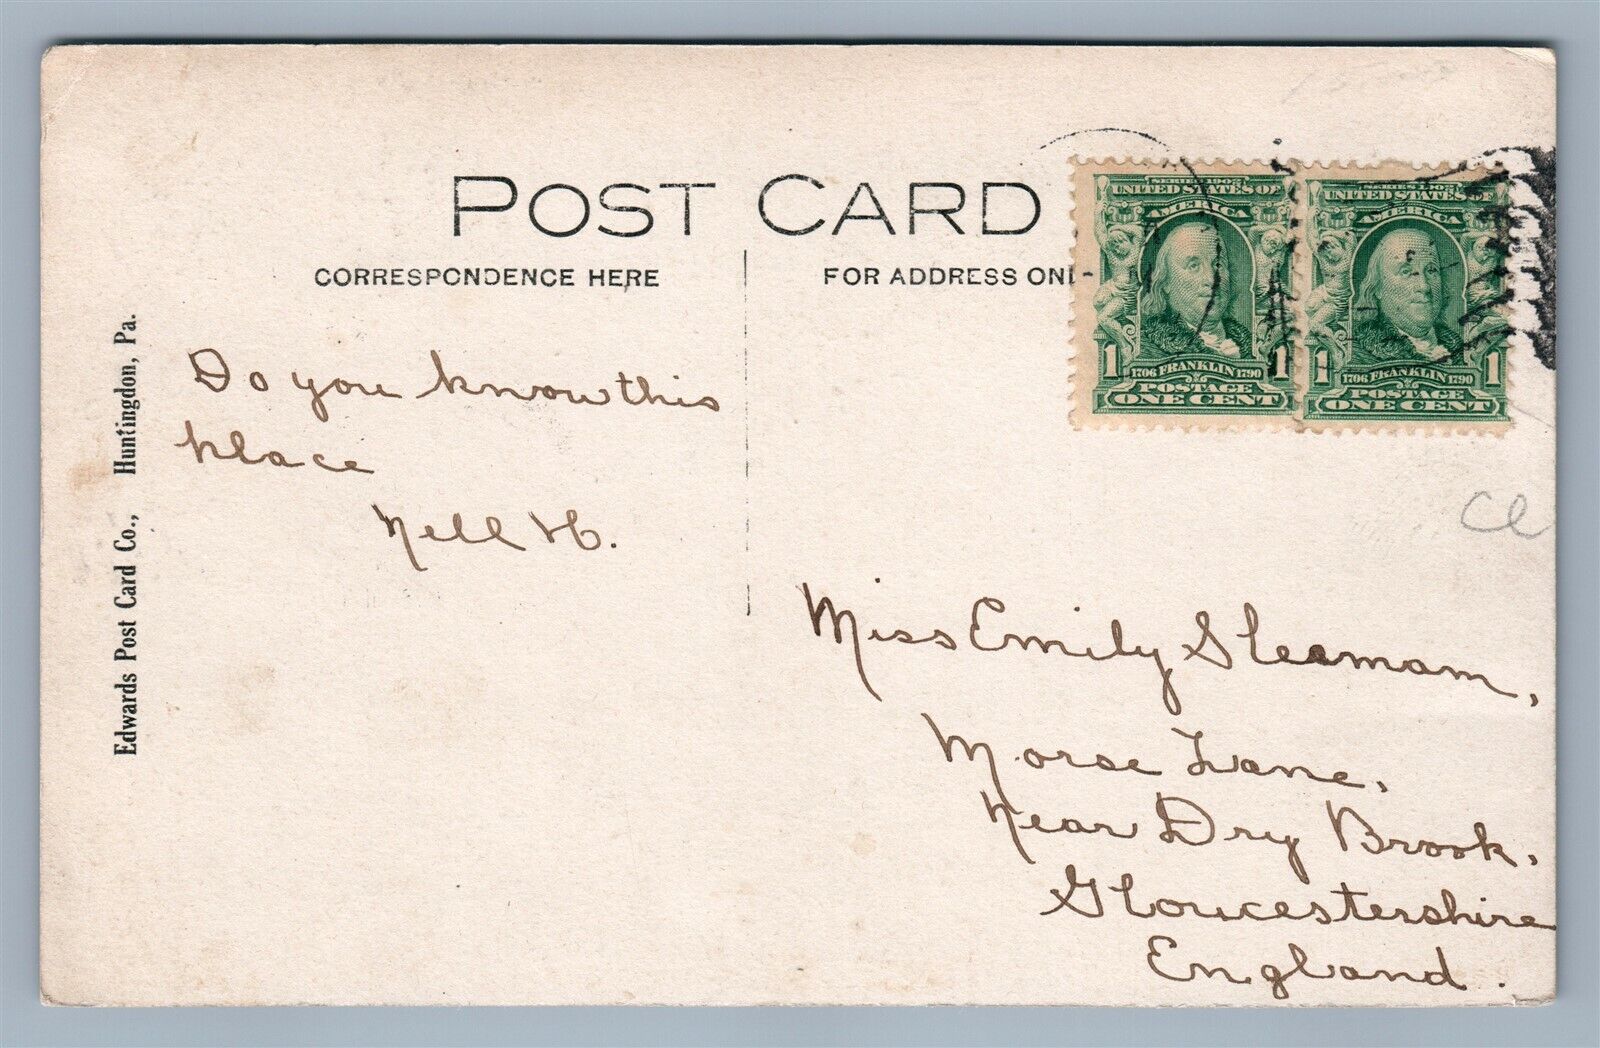 POST CARD
CORRESPONDENCE HERE
FOR ADDRESS ONL
Edwards Post Card Co., Huntingdon, Pa.
SERIES 1902
UNITED STATES OF
AMERICA
1 1
1706 FRANKLIN 1790
POSTAGE
ONE CENT
SERIES 1902
UNITED STATES OF
AMERICA
1 1
1706 FRANKLIN 1790
POSTAGE
ONE CENT
Do you know this
place
Nell H.
Cl
Miss Emily Sleamam,
Morse Lane,
Near Dry Brook,
Gloucestershire
England.